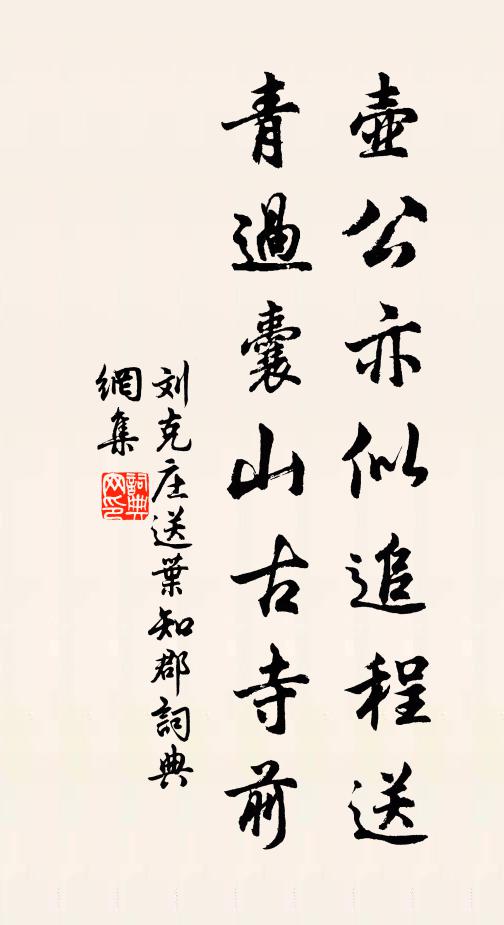 壺公亦似追程送
青過囊山古寺前
刘克庄送葉知郡詞典
網集
詞典
网印